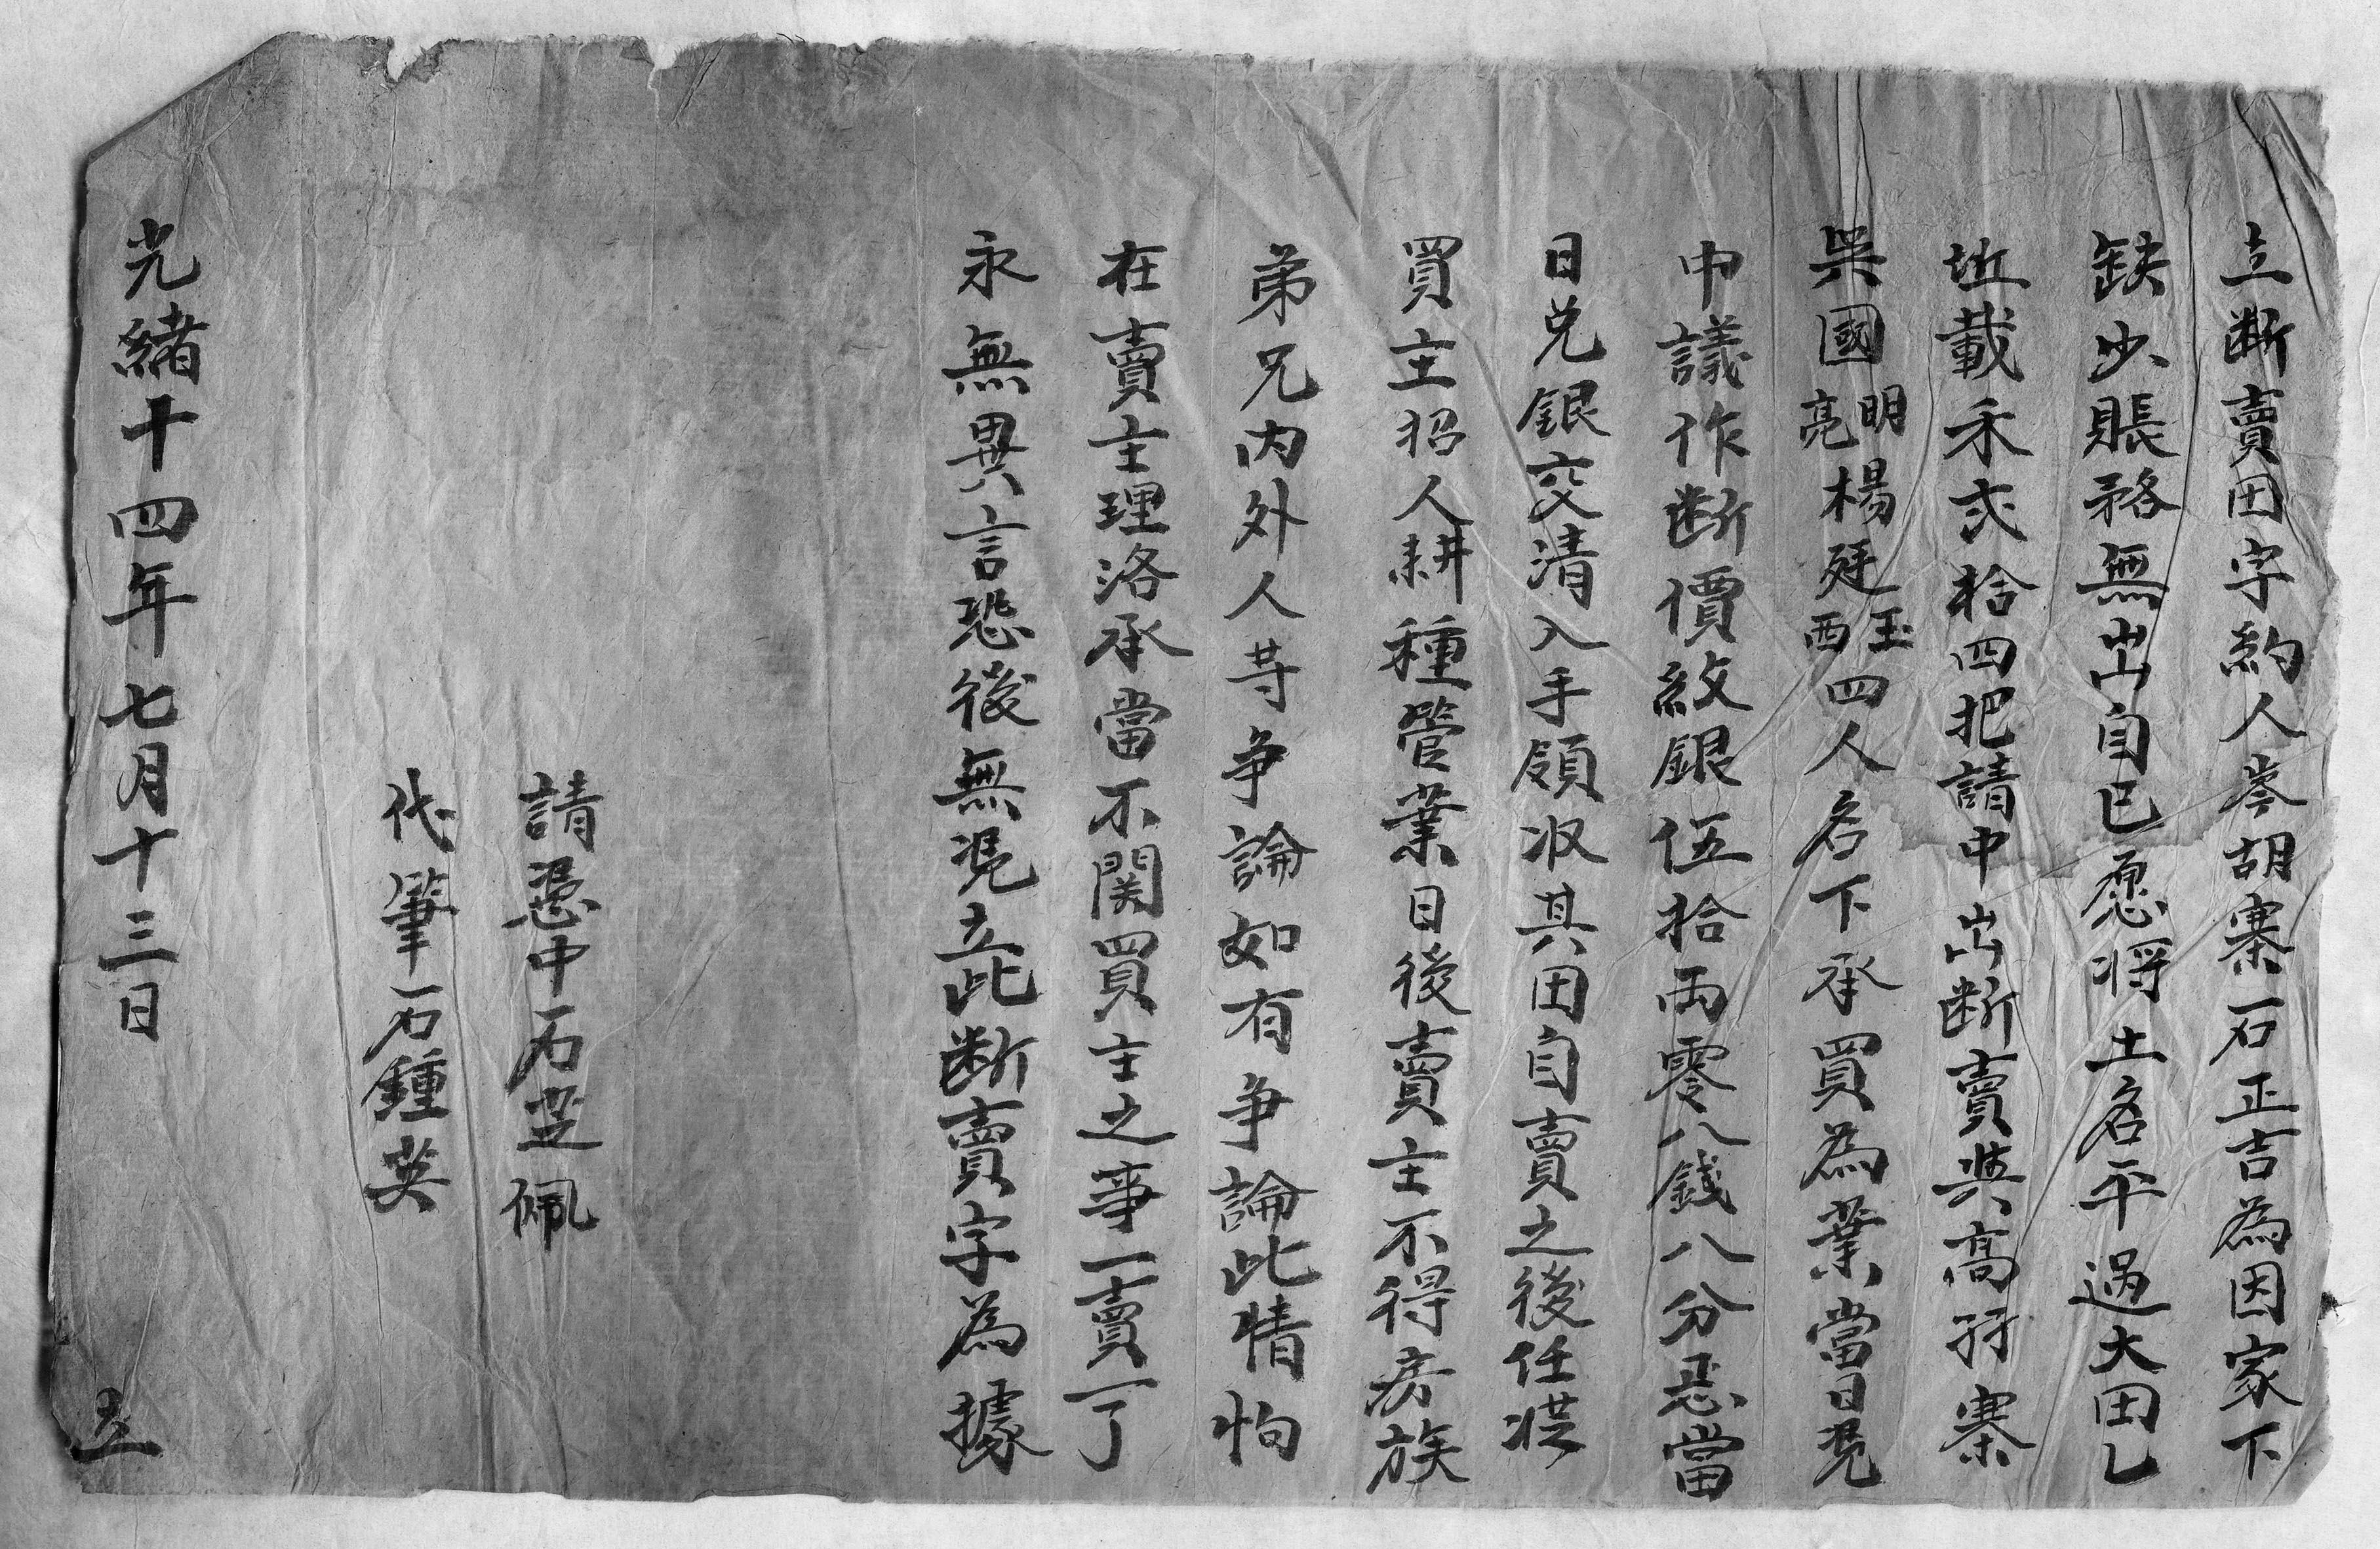 立断賣田字約人岑胡寨石正吉為因家下
缺少賬務無出自己愿将土名平過大田乚
坵載禾弍拾四把請中出断賣與高孖寨
吳國明亮楊廷玉西四人名下承買為業當日凴
中議作断價紋銀伍拾両零八錢八分悉當
日兑銀交清入手領收其田自賣之後任從
買主招人耕種管業日後賣主不得房族
弟兄内外人等争論如有争論此情怐
在賣主理洛承當不関買主之事一賣一了
永無異言恐後無凴立此断賣字為據
請憑中石芝佩
代筆石鍾英
光緒十四年七月十三日 立